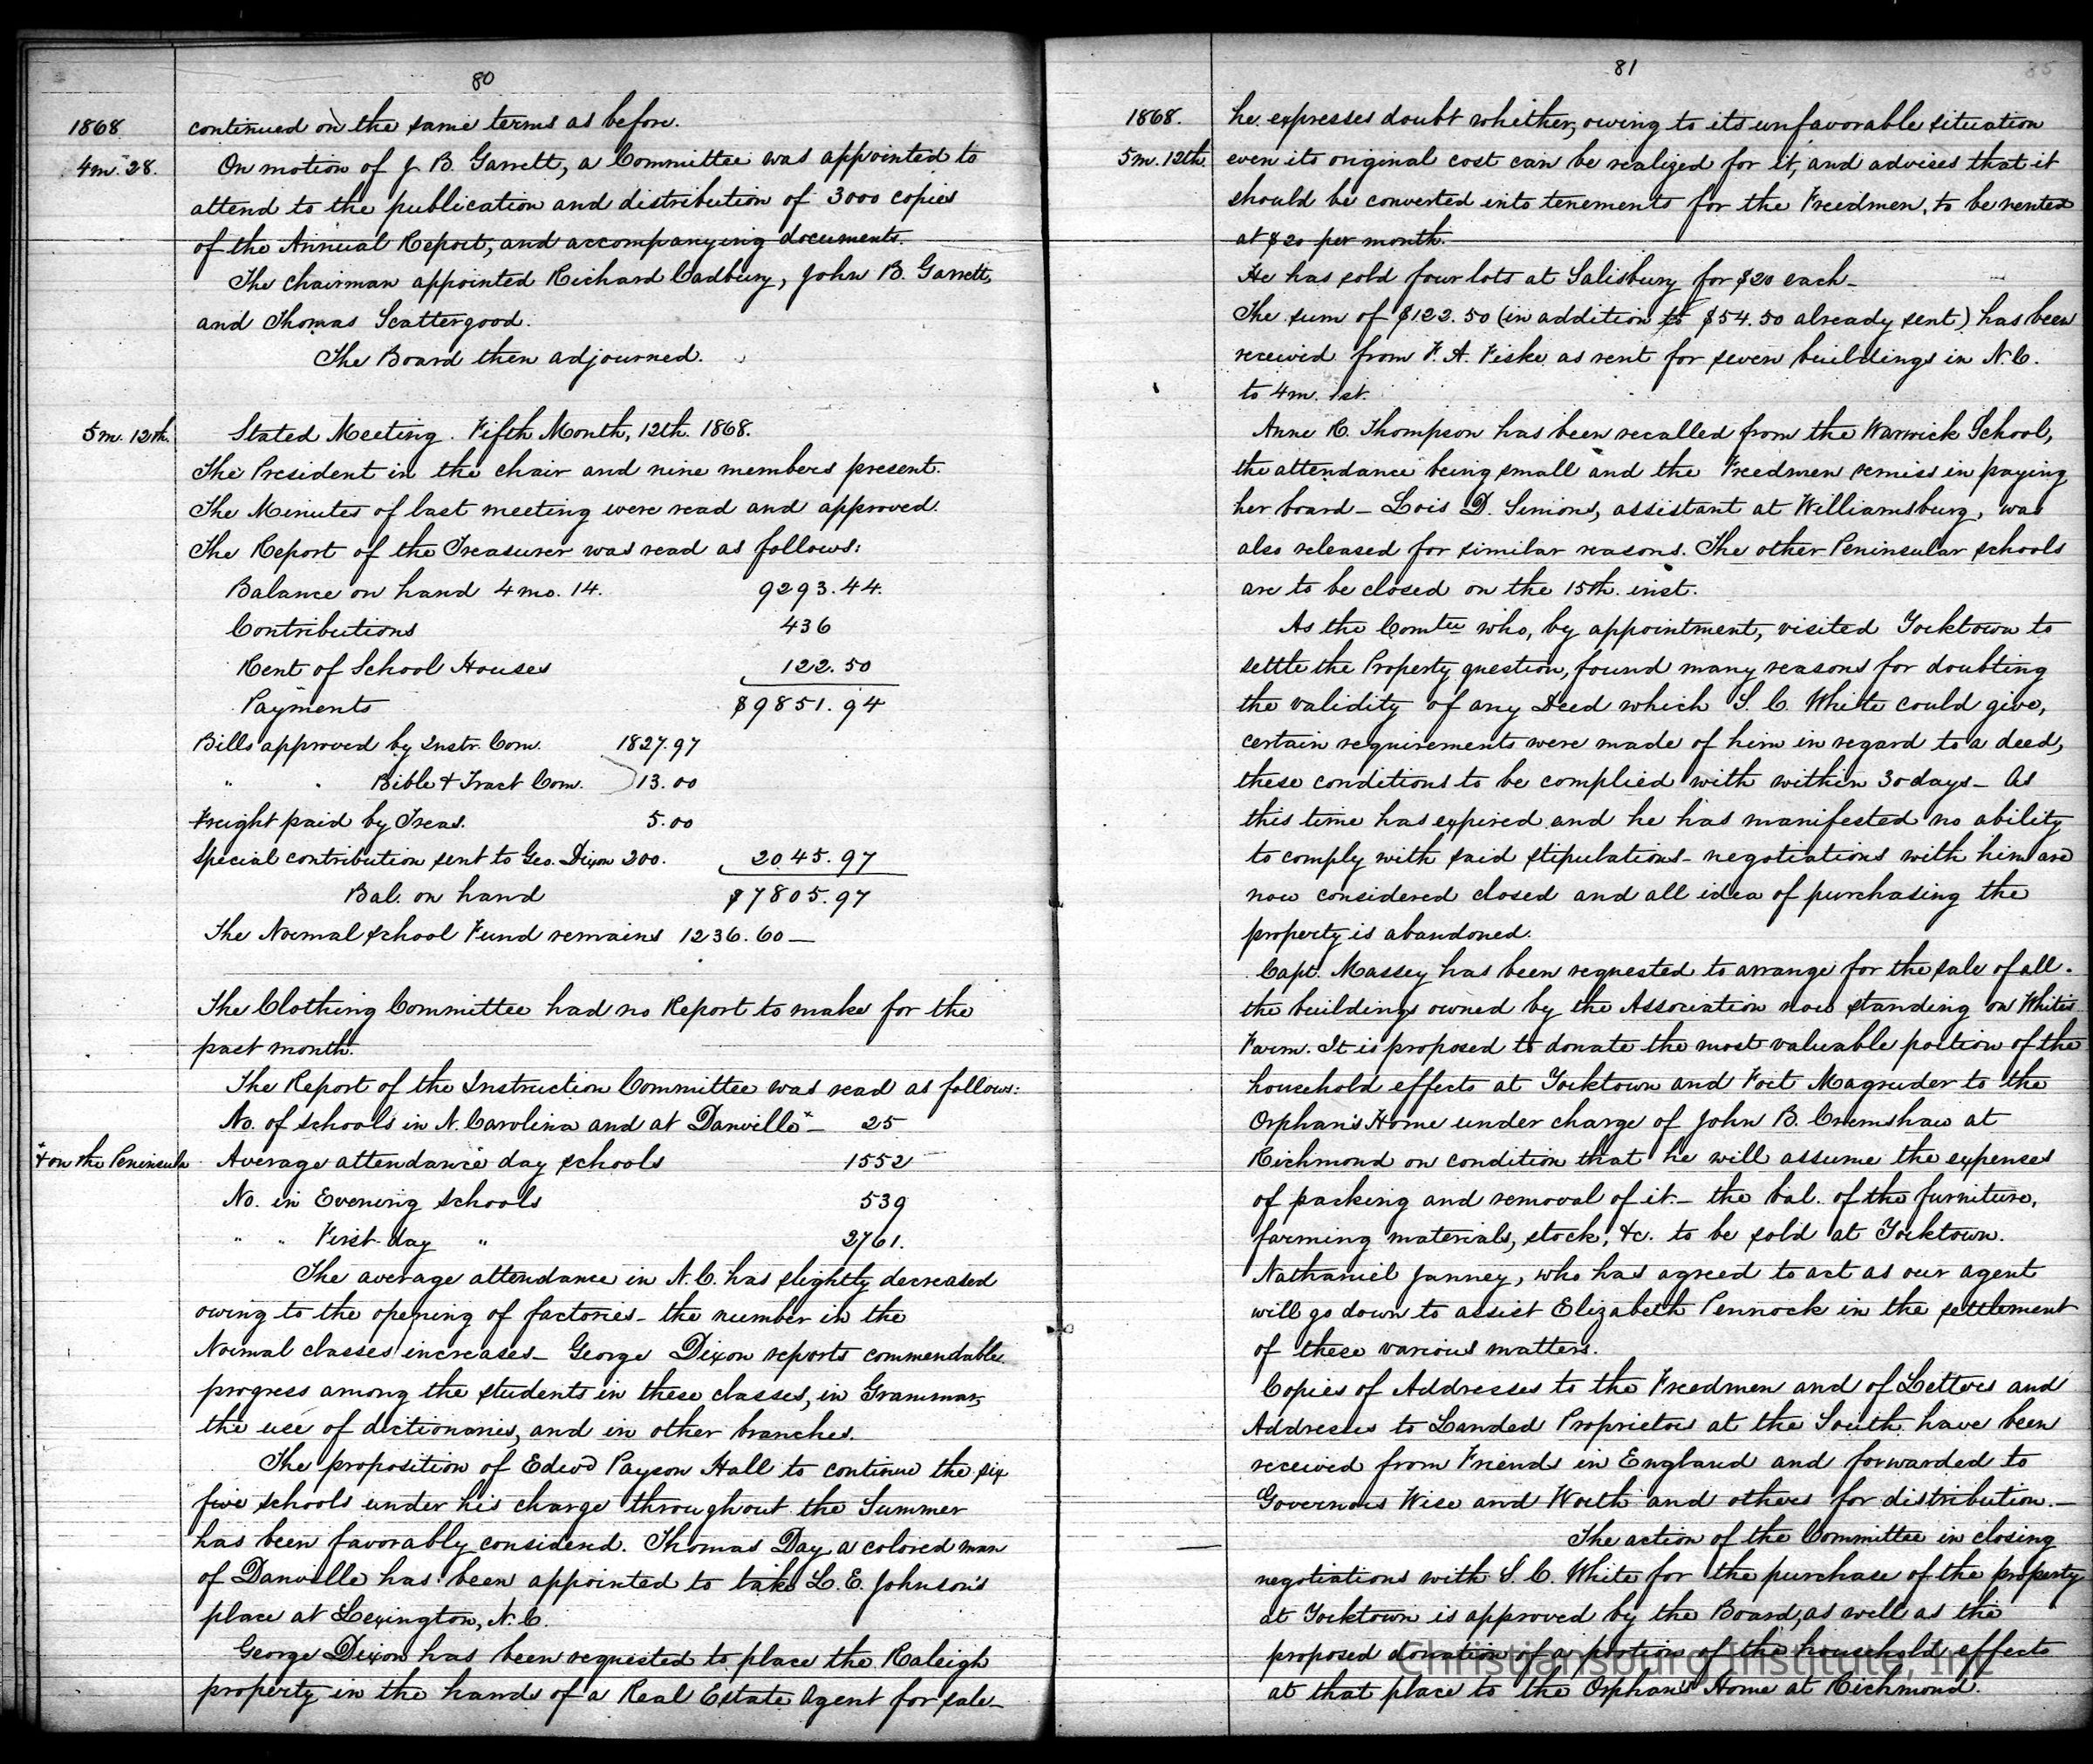 80
1868 continued on the same terms as before.
4m. 28. On motion of J. B. Garrett, a Committee was appointed to
attend to the publication and distribution of 3000 copies
of the Annual Report, and accompanying documents.
The chairman appointed Richard Cadbury, John B. Garrett,
and Thomas Scattergood.
The Board then adjourned.
5m. 12th. Stated Meeting. Fifth Month, 12th. 1868.
The President in the chair and nine members present.
The Minutes of last meeting were read and approved.
The Report of the Treasurer was read as follows:
Balance on hand 4 mo. 14. 9293.44.
Contributions 436
Rent of School Houses 122.50
Payments $9851.94
Bills approved by Instr. Com. 1827.97
" " Bible & Tract Com. 13.00
Freight paid by Treas. 5.00
Special contribution sent to Geo. Dixon 200. 2045.97
Bal. on hand $7805.97
The Normal School Fund remains 1236.60 —
The Clothing Committee had no Report to make for the
past month.
The Report of the Instruction Committee was read as follows:
No. of schools in N. Carolina and at Danville* — 25
*& on the Peninsula Average attendance day schools 1552
No. in Evening Schools 539
" " First-day " 2761.
The average attendance in N.C. has slightly decreased
owing to the opening of factories - the number in the
Normal classes increases — George Dixon reports commendable
progress among the students in these classes, in Grammar,
the use of dictionaries, and in other branches.
The proposition of Edwd Payson Hall to continue the six
five schools under his charge throughout the Summer
has been favorably considered. Thomas Day a colored man
of Danville has been appointed to take L. E. Johnson's
place at Lexington, N.C.
George Dixon has been requested to place the Raleigh
property in the hands of a Real Estate Agent for sale —
81
85
1868. he expresses doubt whether, owing to its unfavorable situation
5m. 12th. even its original cost can be realized for it, and advises that it
should be converted into tenements for the Freedmen, to be rented
at $20 per month.
He has sold four lots at Salisbury for $20 each —
The sum of $122.50 (in addition to $54.50 already sent) has been
received from F. A. Fiske as rent for seven buildings in N.C.
to 4m. 1st.
Anne R. Thompson has been recalled from the Warwick School,
the attendance being small and the Freedmen remiss in paying
her board — Lois D. Simons, assistant at Williamsburg, was
also released for similar reasons. The other Peninsular schools
are to be closed on the 15th. inst.
As the Comtee who, by appointment, visited Yorktown to
settle the Property question, found many reasons for doubting
the validity of any Deed which S. C. White could give,
certain requirements were made of him in regard to a deed,
these conditions to be complied with within 30 days — As
this time has expired and he has manifested no ability
to comply with said stipulations - negotiations with him are
now considered closed and all idea of purchasing the
property is abandoned.
Capt. Massey has been requested to arrange for the sale of all
the buildings owned by the Association now standing on White's
Farm. It is proposed to donate the most valuable portion of the
household effects at Yorktown and Fort Magruder to the
Orphan's Home under charge of John B. Crenshaw at
Richmond on condition that he will assume the expenses
of packing and removal of it — the bal. of the furniture,
farming materials, stock, &c. to be sold at Yorktown.
Nathaniel Janney, who has agreed to act as our agent
will go down to assist Elizabeth Pennock in the settlement
of these various matters.
Copies of Addresses to the Freedmen and of Letters and
Addresses to Landed Proprietors at the South have been
received from Friends in England and forwarded to
Governors Wise and Worth and others for distribution. —
The action of the Committee in closing
negotiations with S. C. White for the purchase of the property
at Yorktown is approved by the Board, as well as the
proposed donation of a portion of the household effects
at that place to the Orphan's Home at Richmond.
Christiansburg Institute, Inc